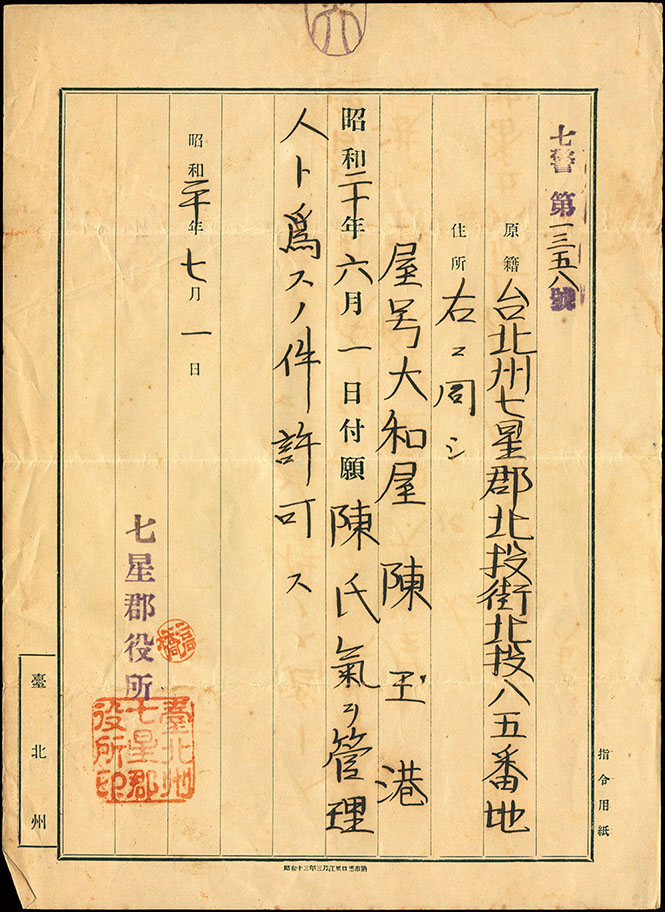 七警第一三五八號
原籍 台北州七星郡北投街北投八五番地
住所 右ニ同シ
屋号大和屋 陳玉港
昭和二十年六月一日付願陳氏氣ヲ管理
人ト爲スノ件許可ス
昭和二十年七月一日
七星郡役所
臺北州
七星郡
役所印
臺北州
指令用紙